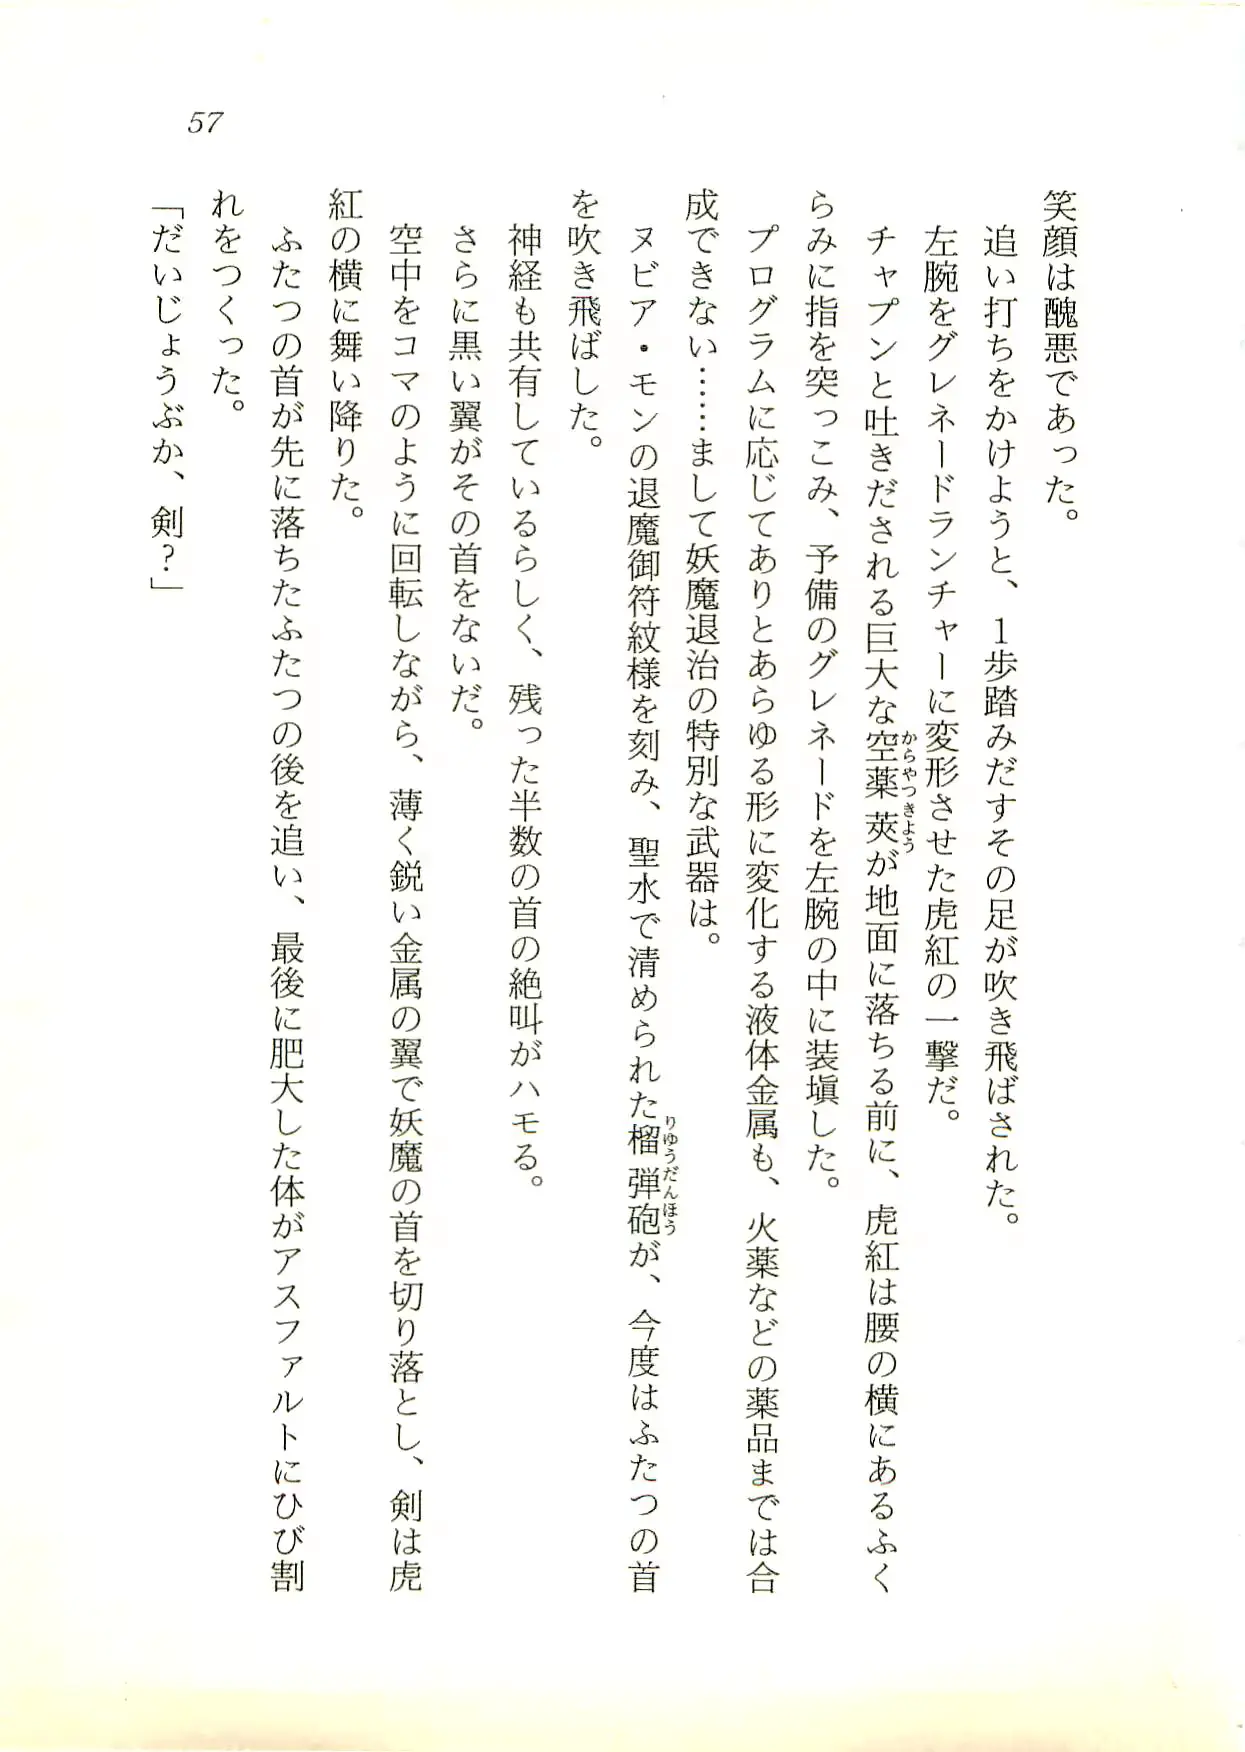 57
笑顔は醜悪であった。
追い打ちをかけようと、1歩踏みだすその足が吹き飛ばされた。
左腕をグレネードランチャーに変形させた虎紅の一撃だ。
チャプンと吐きだされる巨大な空薬莢が地面に落ちる前に、虎紅は腰の横にあるふく
からやつきよう
らみに指を突っこみ、予備のグレネードを左腕の中に装塡した。
プログラムに応じてありとあらゆる形に変化する液体金属も、火薬などの薬品までは合
成できない……まして妖魔退治の特別な武器は。
ヌビア・モンの退魔御符紋様を刻み、聖水で清められた榴弾砲が、今度はふたつの首
りゆうだんほう
を吹き飛ばした。
神経も共有しているらしく、残った半数の首の絶叫がハモる。
さらに黒い翼がその首をないだ。
空中をコマのように回転しながら、薄く鋭い金属の翼で妖魔の首を切り落とし、剣は虎
紅の横に舞い降りた。
ふたつの首が先に落ちたふたつの後を追い、最後に肥大した体がアスファルトにひび割
れをつくった。
「だいじょうぶか、剣？」